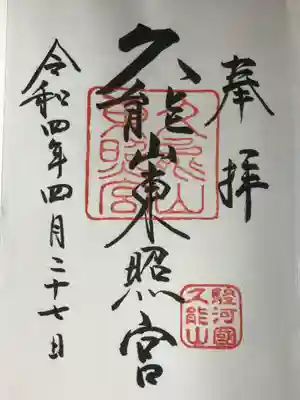 奉拝
久能山東照宮
令和四年四月二十七日
久能山東照宮
駿河國久能山